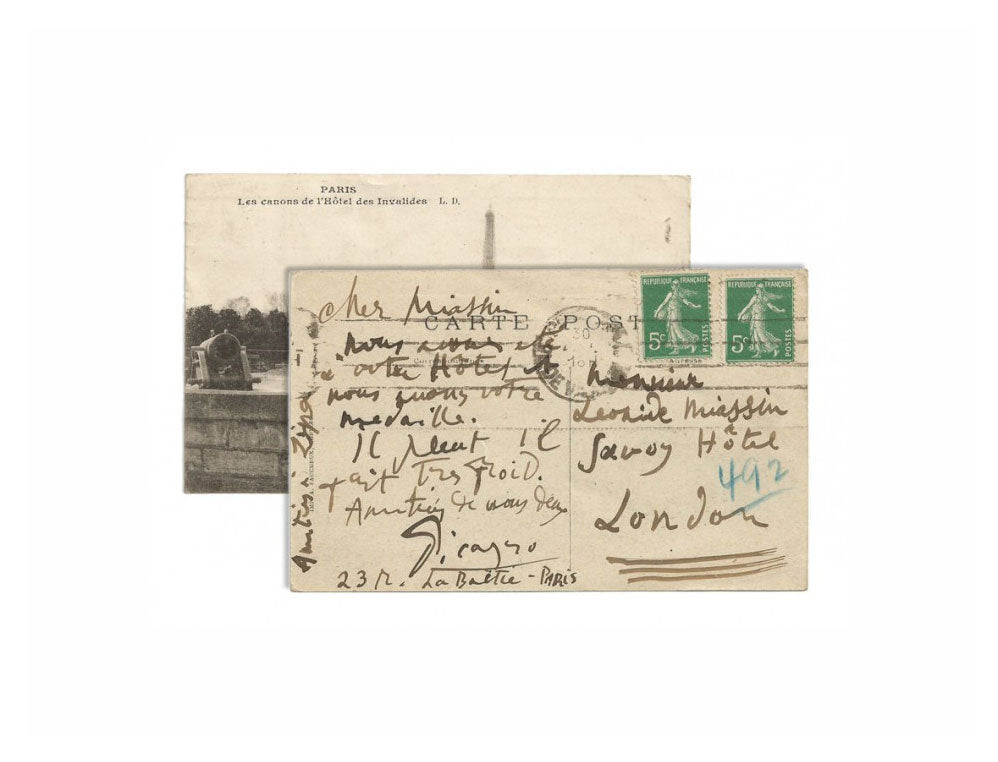 PARIS
Les canons de l'Hôtel des Invalides L. D.
CARTE POST
Cher Miassin
nous avons été
a votre Hôtel et
nous avons votre
medaille.
Il pleut il
fait tres froid.
Amitiés de nous deux
Picasso
23 R. La Baëtie - PARIS
REPUBLIQUE FRANÇAISE
5c POSTES
REPUBLIQUE FRANÇAISE
5c POSTES
30
Monsieur
Leonide Miassin
Savoy Hôtel
492
London